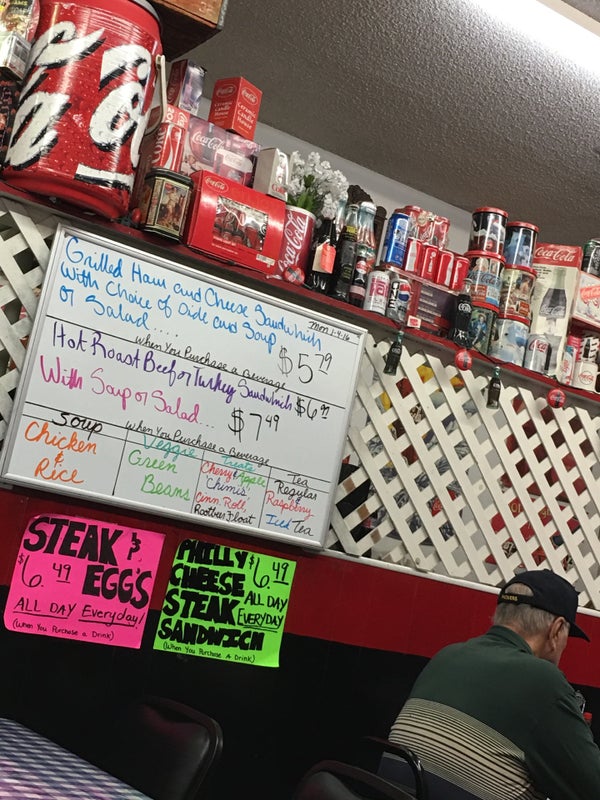 Coca-Cola
Coca-Cola
Ceramic
Candle
House
Coca-Cola
Coca-Cola
Coca-Cola
Coca-Cola
Grilled Ham and Cheese Sandwhich
With Choice of Side and Soup
or Salad....
Mon 1-4-16
When You Purchase a Beverage
$5 79
Hot Roast Beef or Turkey Sandwhich $6 99
With Soup or Salad...
$7 49
When You Purchase a Beverage
Soup
Chicken
&
Rice
Veggie
Green
Beans
Treats
Cherry Apple
Chimis,
Cinn. Roll,
Rootbeer Float
Tea
Regular
Raspberry
Iced Tea
STEAK &
EGG'S
$6.49
ALL DAY Everyday!
(When You Purchase a Drink)
PHILLY
CHEESE
STEAK
SANDWICH
$6.49
ALL DAY
EVERYDAY
(When You Purchase A Drink)